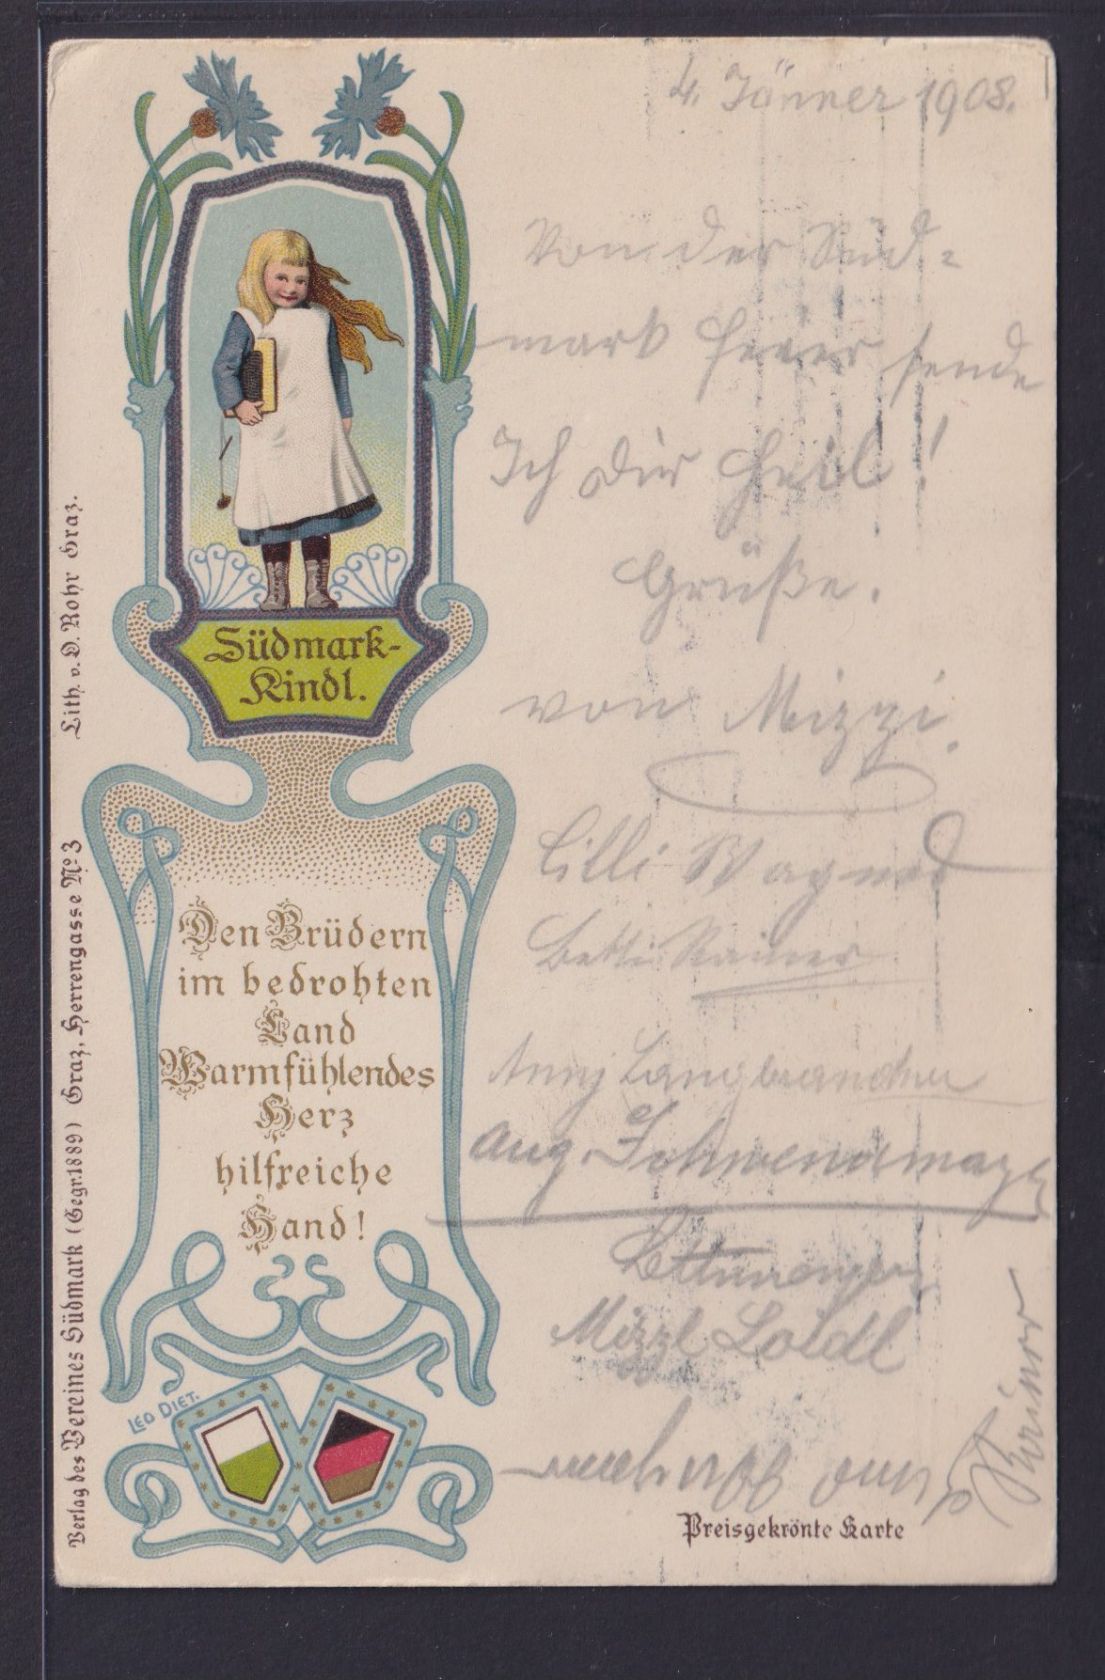 4. Jänner 1908.
Von der Süd=
mark feier sende
Ich dir Heil!
Grüße.
von Mizzi.
Lilli Wagner
Betti Rainer
Anny Langbrandtner
Aug. Schwendemayer
Mizzl Loidl
Südmark-
Kindl.
Den Brüdern
im bedrohten
Land
Warmfühlendes
Herz
hilfreiche
Hand!
LEO DIET.
Preisgekrönte Karte
Lith. v. O. Rohr Graz.
Verlag des Vereines Südmark (Gegr. 1889) Graz, Herrengasse No 3